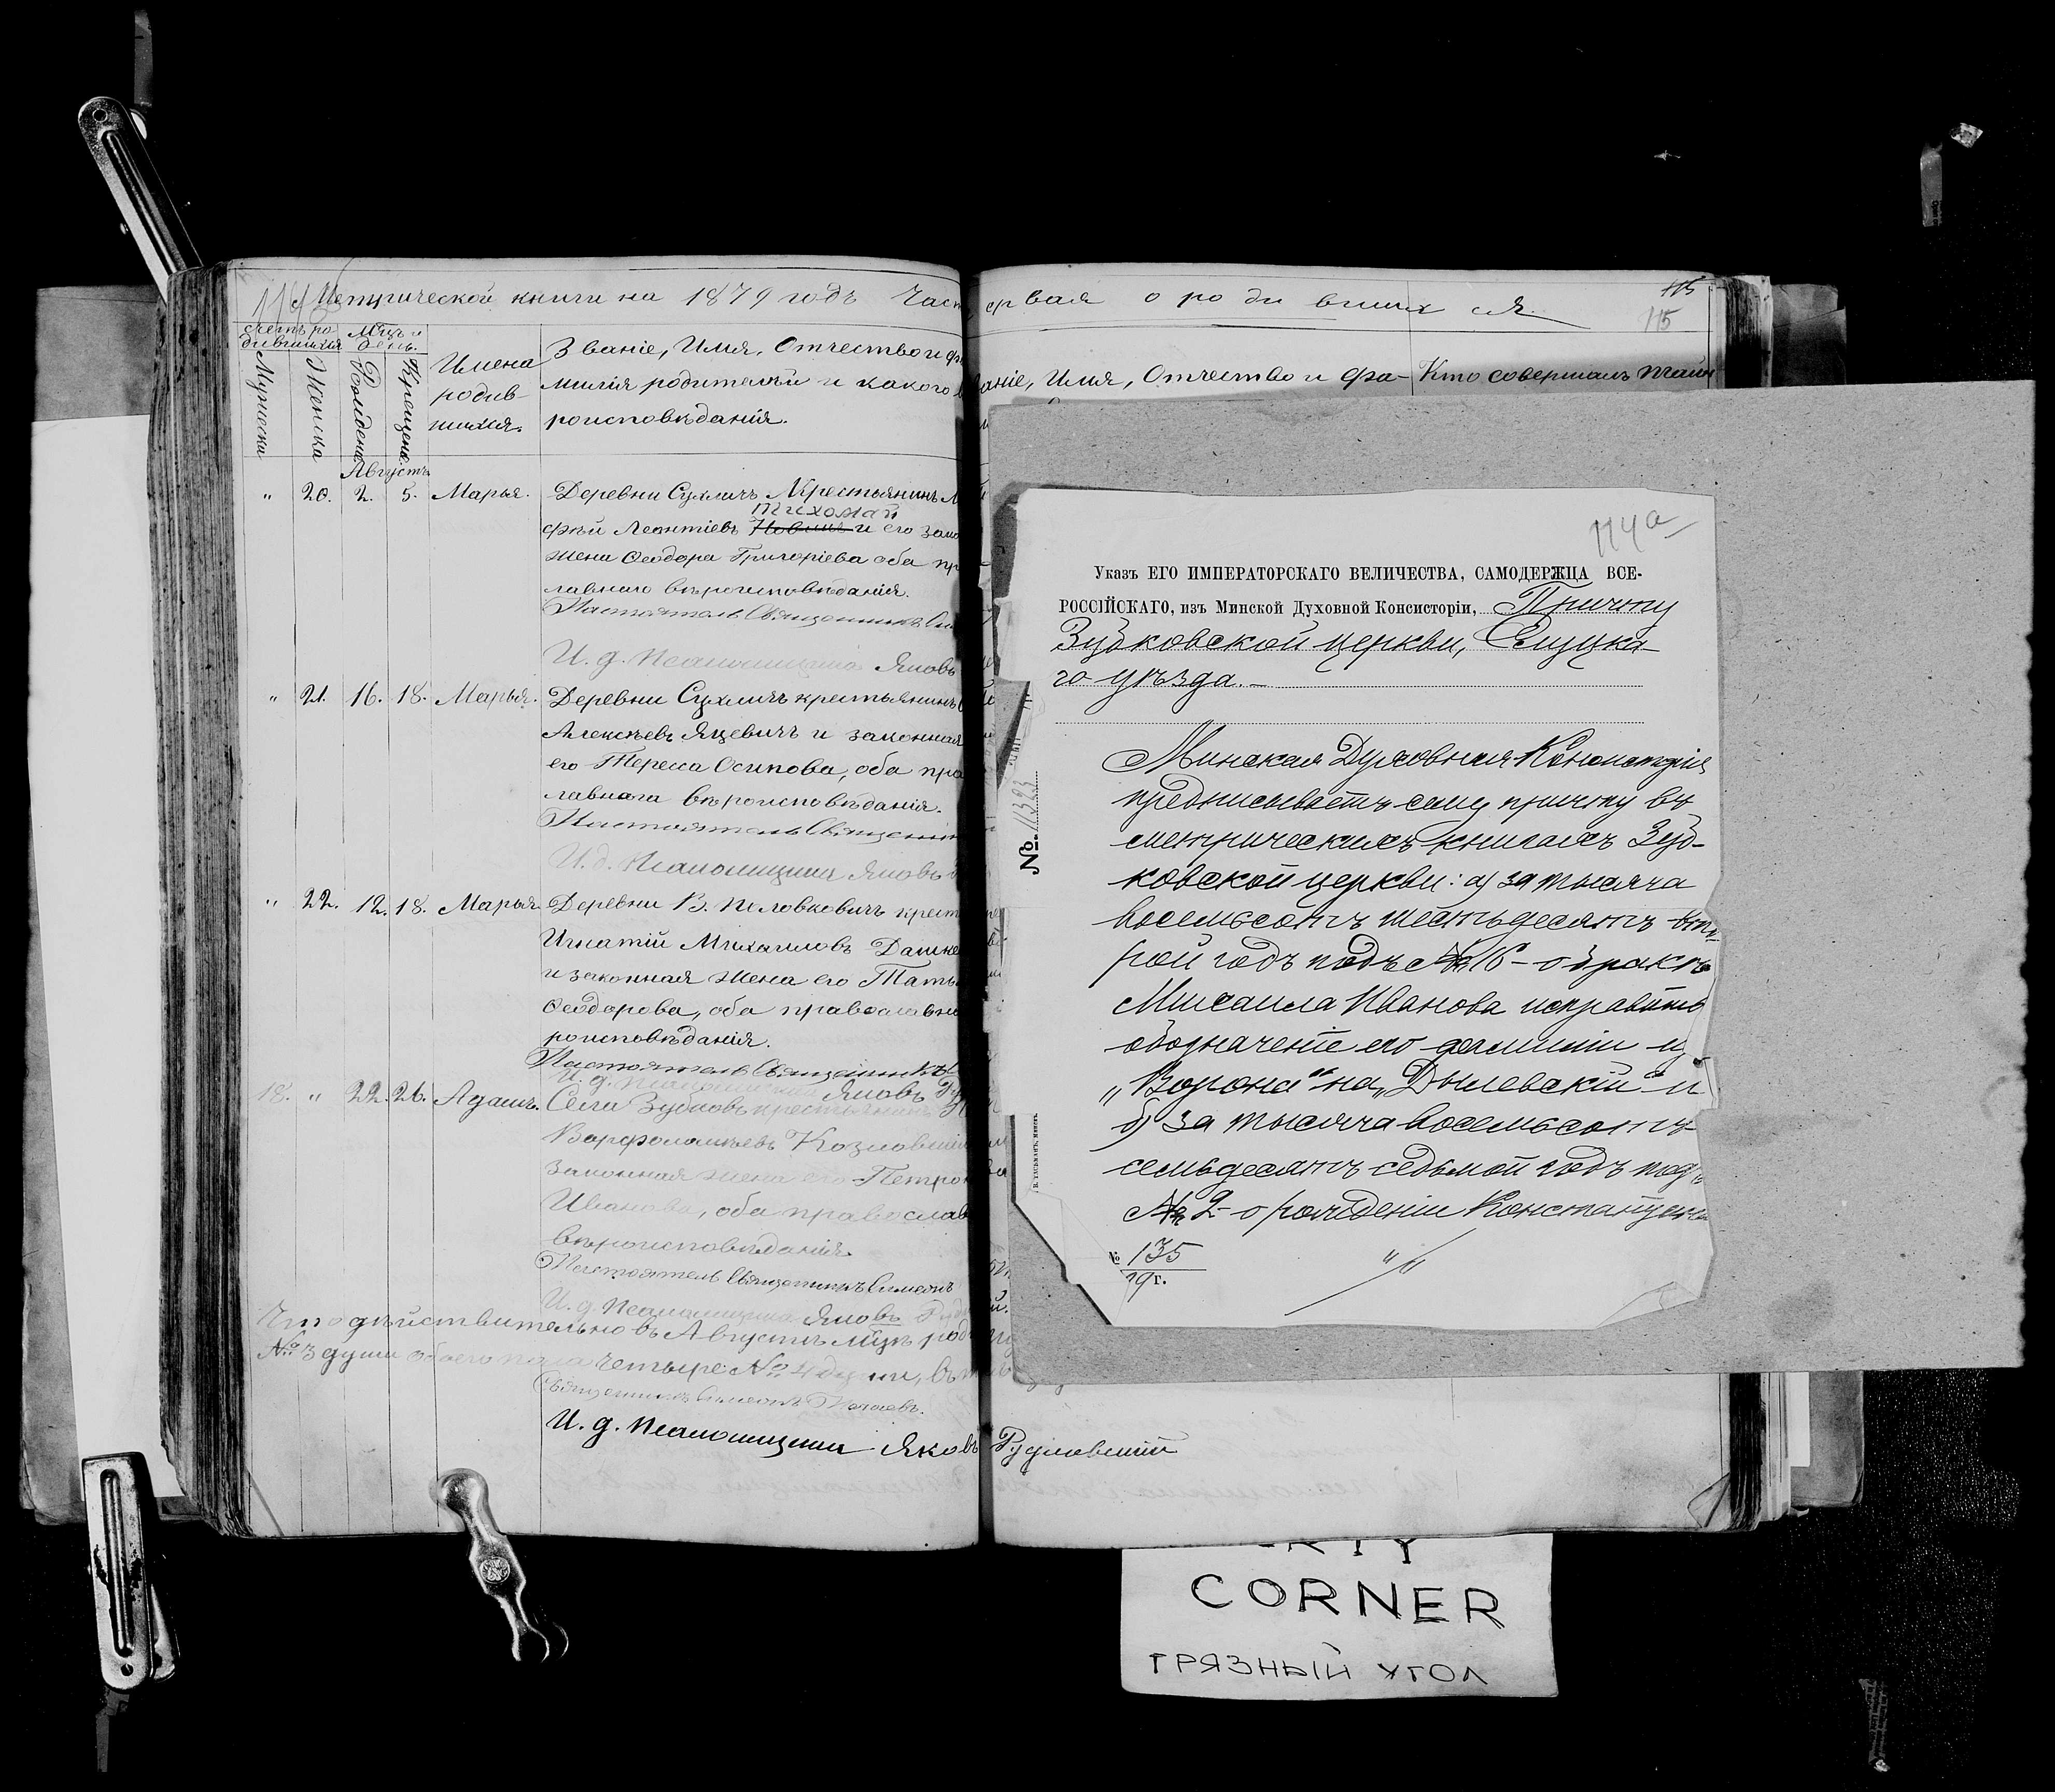 114 Метрической книги на 1879 годъ Част
счетъ ро-
дившихся
Мѣцъ и
день.
Мужеска
Женска
Рожденія
Крещенія
Имена
родив-
шихся.
Званіе, Имя, Отчество и фа
милія родителей и какого в
роисповѣданія.
Августъ
" 20. 2. 5. Марья. Деревни Сухличъ Крестьянинъ
Тихомай
фѣй Леонтіевъ Новикъ и его зако
жена Ѳеодора Григоріева оба пр
лавнаго вѣроисповѣданія.
Настоятель Священникъ
И. д. Псаломщика Яковъ
" 21. 16. 18. Марья. Деревни Сухличъ крестьянинъ
Алексѣевъ Яцевичъ и законная
его Тереса Осипова, оба пра
лавнага вѣроисповѣданія.
Настоятель Священни
И. д. Псаломщика Яковъ
" 22. 12. 18. Марья Деревни В. Половковичъ крест
Игнатій Михаиловъ Дашке
и законная жена его Тать
Ѳеодорова, оба православн
роисповѣданія.
Настоятель Священникъ
И. д. Псаломщика Яковъ Ру
18. " 22. 26. Адамъ. Села Зубковъ крестьянинъ
Варфоломѣевъ Козловскій
законная жена его Петро
Иванова, оба православ
вѣроисповѣданія.
Настоятель Священникъ Симеонъ
И. д. Псаломщика Яковъ
Что дѣйствительно въ Августѣ мѣцѣ род
№ 3 души обоего пола четыре № 4 души, въ
Священникъ Симеонъ
И. д. Псаломщика Яковъ Рудаковскій
ервая о родившихся
115
115
аніе, Имя, Отчество и Фа-
Кто совершалъ таин
114а
Указъ ЕГО ИМПЕРАТОРСКАГО ВЕЛИЧЕСТВА, САМОДЕРЖЦА ВСЕ-
РОССІЙСКАГО, изъ Минской Духовной Консисторіи, Причту
Зубковской церкви, Слуцка-
го уѣзда.—
№ 11323
Минская Духовная Консисторія
предписываетъ сему причту въ
метрическихъ книгахъ Зуб-
ковской церкви: а) за тысяча
восемьсотъ шестьдесятъ вто-
рой годъ подъ № 16 - о бракѣ
Михаила Иванова исправить
обозначеніе его фамиліи изъ
„Ворона" на „Дылевскій" и
б) за тысяча восемьсотъ
семьдесятъ седьмой годъ подъ
№ 2 - о рожденіи Константина
№ 135
19 г.
CORNER
ГРЯЗНЫЙ УГОЛ